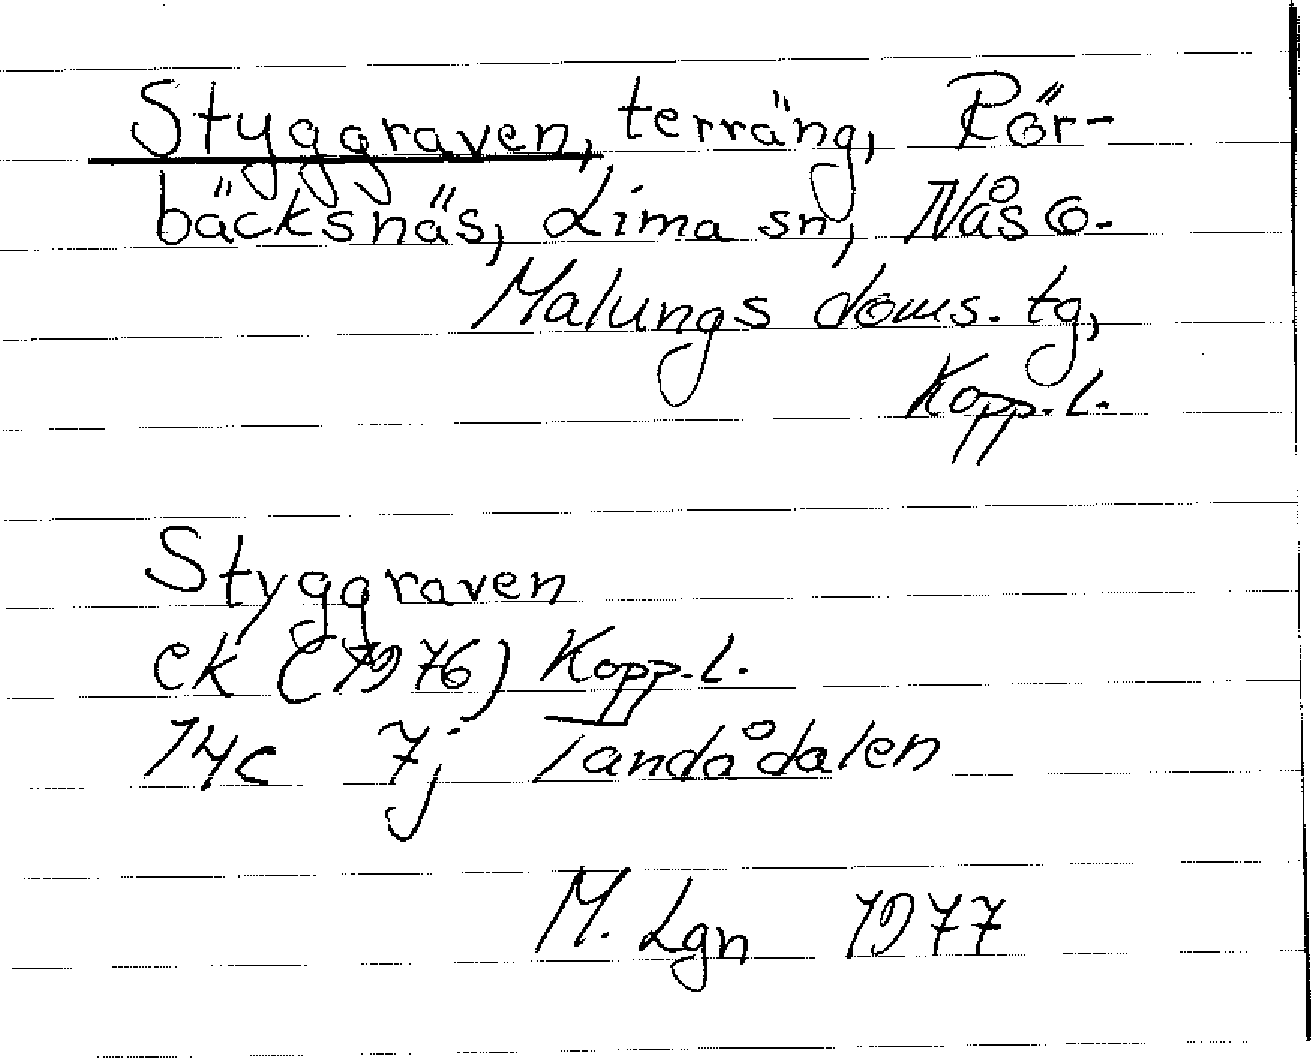 Styggraven, terräng, Rör-
bäcksnäs, Lima sn, Nås o.
Malungs doms. tg,
Kopp. l.
Styggraven
ek (1976) Kopp. l.
14c 7j Tandådalen
M. Lgn 1977